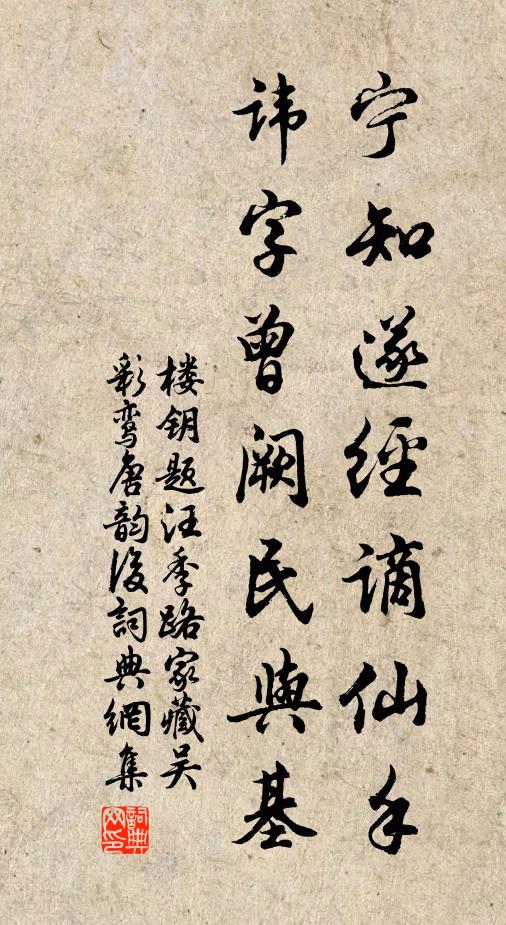 宁知遂经谪仙手
讳字曾阙民与基
楼钥题汪季路家藏吴
彩鸾唐韵后词典网集
词典
网印